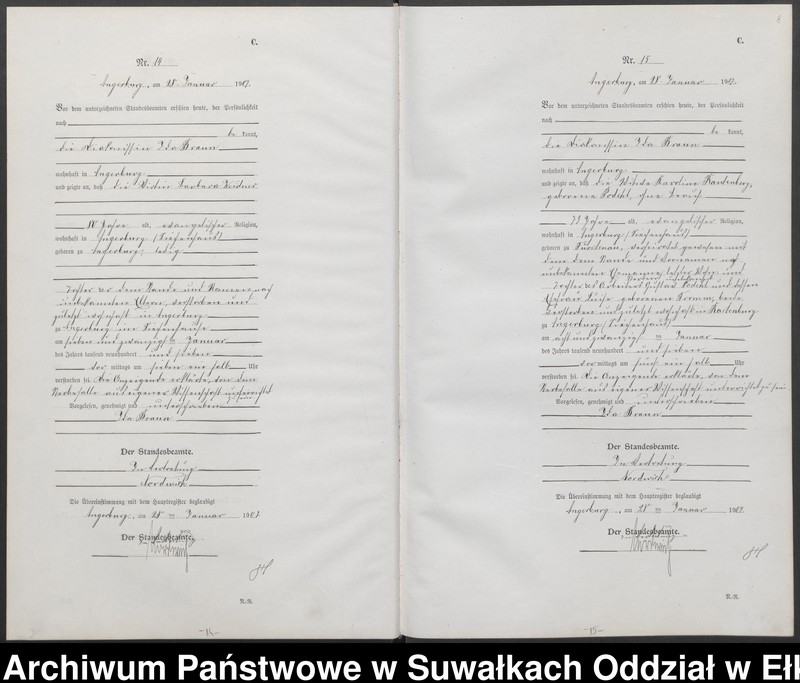 C.
Nr. 14
Angerburg, am 28. Januar 1907.
Vor dem unterzeichneten Standesbeamten erschien heute, der Persönlichkeit
nach
be kannt,
die Diakonissin Ida Braun
wohnhaft in Angerburg
und zeigte an, daß die Barbara
alt, evangelischer Religion,
wohnhaft in Angerburg (Siechenhaus)
geboren zu Angerburg, ledig
Tochter der dem Stande und Namen nach
unbekannten Eltern, verstorben und
zuletzt wohnhaft in Angerburg
zu Angerburg im Siechenhause
am sieben und zwanzigsten Januar
des Jahres tausend neunhundert und sieben
vor mittags um sieben ein halb Uhr
verstorben sei. Die Anzeigende erklärte, von dem
Sterbefalle aus eigener Wissenschaft unterrichtet
zu sein
Vorgelesen, genehmigt und unterschrieben
Ida Braun
Der Standesbeamte.
In Vertretung
Die Übereinstimmung mit dem Hauptregister beglaubigt
Angerburg, am 28 ten Januar 1907.
Der Standesbeamte.
N.-R.
-14-
8
C.
Nr. 15
Angerburg, am 28. Januar 1907.
Vor dem unterzeichneten Standesbeamten erschien heute, der Persönlichkeit
nach
be kannt,
die Diakonissin Ida Braun
wohnhaft in Angerburg
und zeigte an, daß die Witwe Karoline
geborene ohne Beruf
73 Jahre alt, evangelischer Religion,
wohnhaft in Angerburg (Siechenhaus)
geboren zu verheiratet gewesen mit
dem dem Stande und Vornamen nach
unbekannten
Tochter des Arbeiters Gustav und dessen
Ehefrau Luise geborenen beide
verstorben und zuletzt wohnhaft in
zu Angerburg (Siechenhaus)
am acht und zwanzigsten Januar
des Jahres tausend neunhundert und sieben
vor mittags um fünf ein halb Uhr
verstorben sei. Die Anzeigende erklärte, von dem
Sterbefalle aus eigener Wissenschaft unterrichtet zu sein
Vorgelesen, genehmigt und unterschrieben
Ida Braun
Der Standesbeamte.
In Vertretung
Die Übereinstimmung mit dem Hauptregister beglaubigt
Angerburg, am 28 ten Januar 1907.
Der Standesbeamte.
N.-R.
-15-
Archiwum Państwowe w Suwałkach Oddział w Ełk